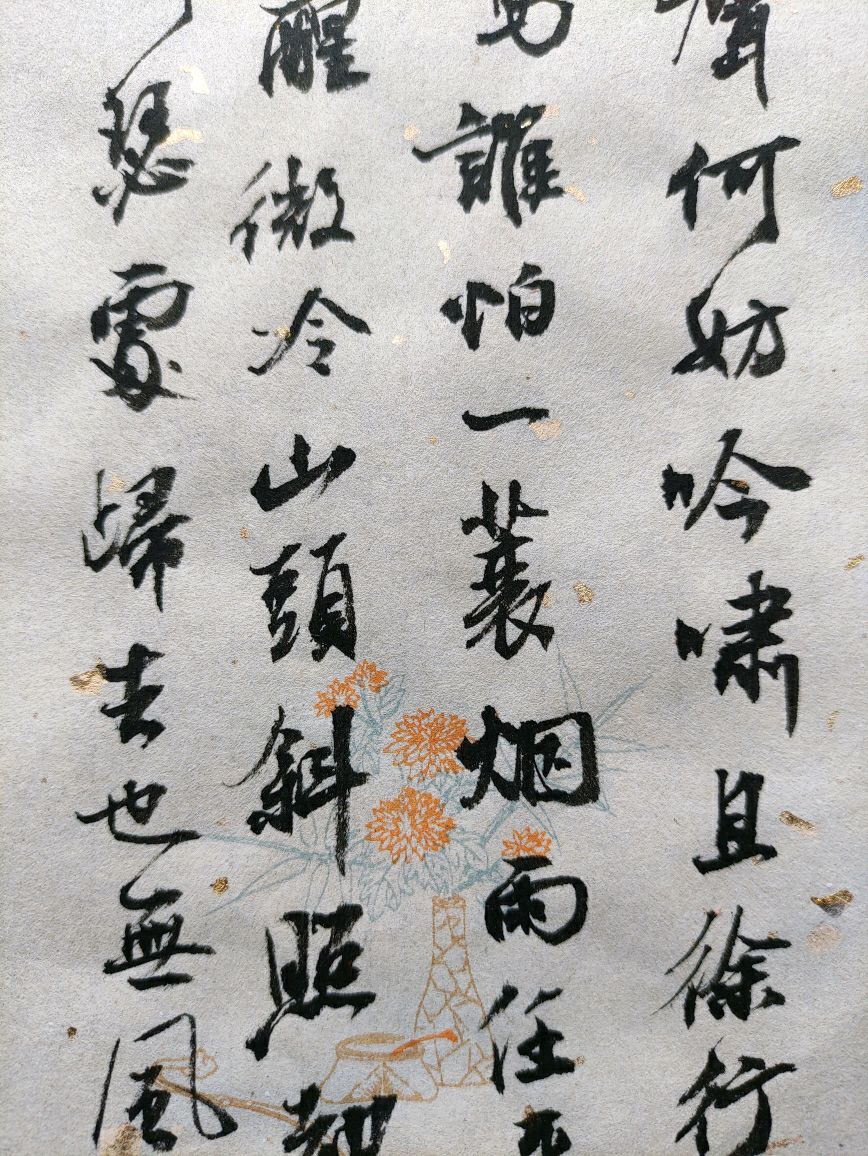 聲何妨吟嘯且徐行
馬誰怕一蓑烟雨任平
醒微冷山頭斜照却
瑟處歸去也無風